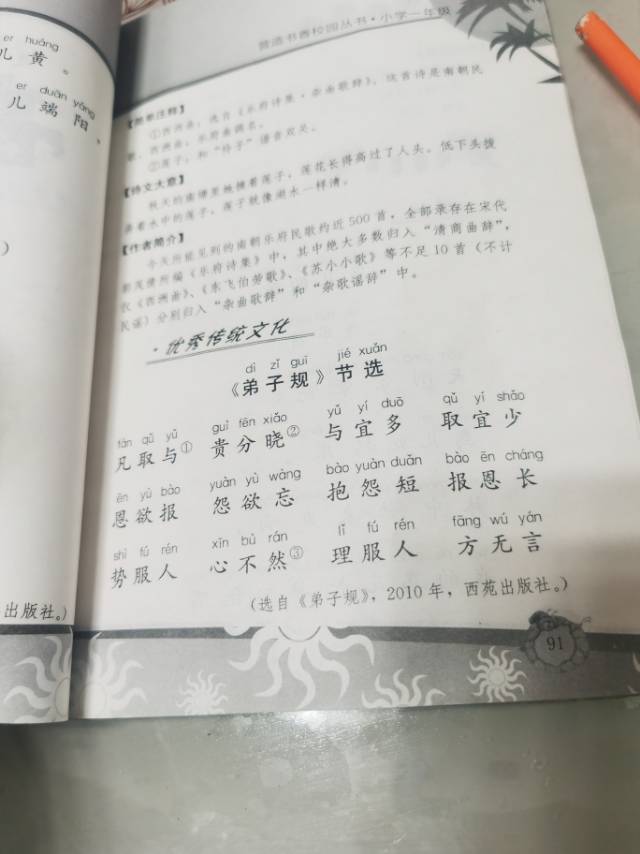 er huáng
儿黄。
er duān yáng
儿端阳，
）
出版社。）
营造书香校园丛书·小学一年级
【简单注释】
①西洲曲：选自《乐府诗集·杂曲歌辞》，这首诗是南朝民
歌。西洲曲，乐府曲调名。
②莲子：和“怜子”谐音双关。
【诗文大意】
秋天的南塘里她摘着莲子，莲花长得高过了人头。低下头拨
弄着水中的莲子，莲子就像湖水一样清。
【作者简介】
今天所能见到的南朝乐府民歌约近500首，全部录存在宋代
郭茂倩所编《乐府诗集》中，其中绝大多数归入“清商曲辞”，
仅《西洲曲》、《东飞伯劳歌》、《苏小小歌》等不足10首（不计
民谣）分别归入“杂曲歌辞”和“杂歌谣辞”中。
·优秀传统文化
dì zǐ guī jié xuǎn
《弟子规》节选
fán qǔ yǔ guì fēn xiǎo yǔ yí duō qǔ yí shǎo
凡取与① 贵分晓② 与宜多 取宜少
ēn yù bào yuàn yù wàng bào yuàn duǎn bào ēn cháng
恩欲报 怨欲忘 抱怨短 报恩长
shì fú rén xīn bù rán lǐ fú rén fāng wú yán
势服人 心不然③ 理服人 方无言
（选自《弟子规》，2010年，西苑出版社。）
91